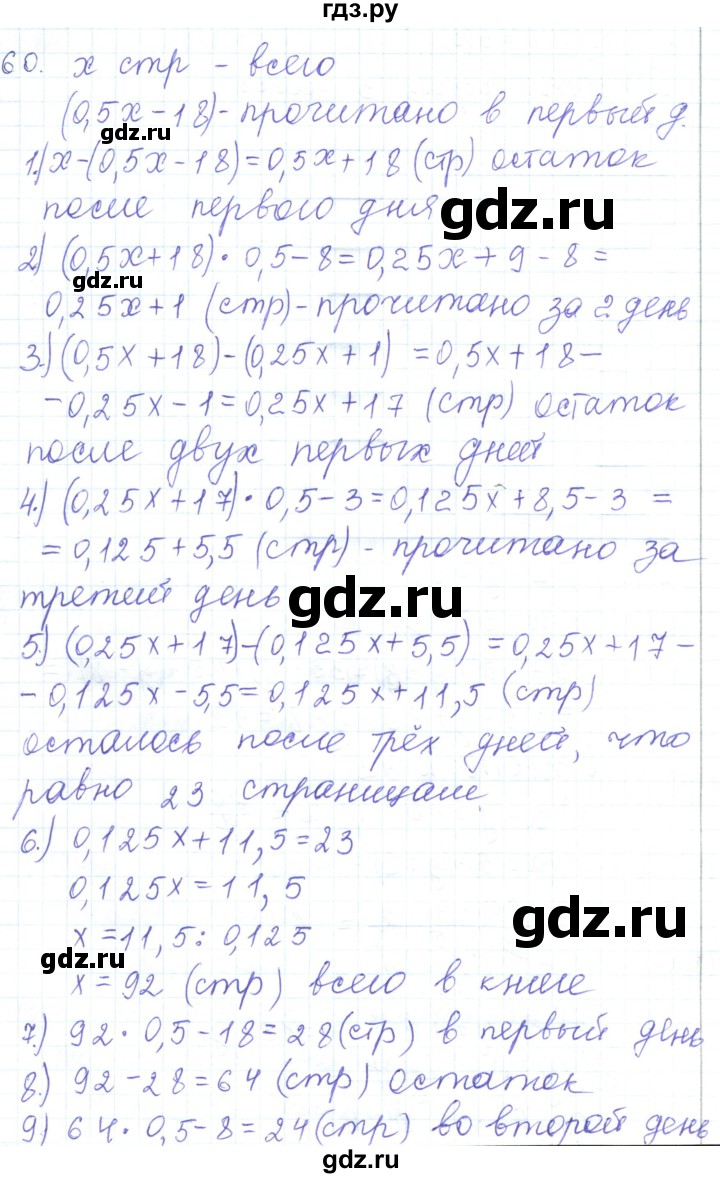 гдз.ру
60. x стр - всего
(0,5x-18)-прочитано в первый д.
gdz.ru
1.) x-(0,5x-18)=0,5x+18 (стр) остаток
после первого дня
gdz.ru
2) (0,5x+18)·0,5-8=0,25x+9-8=
gdz.ru
0,25x+1 (стр)-прочитано за 2 день
3.) (0,5x+18)-(0,25x+1)=0,5x+18-
-0,25x-1=0,25x+17 (стр) остаток
после двух первых дней
4.) (0,25x+17)·0,5-3=0,125x+8,5-3=
=0,125+5,5 (стр)-прочитано за
третий день
gdz.ru
5.) (0,25x+17)-(0,125x+5,5)=0,25x+17-
-0,125x-5,5=0,125x+11,5 (стр)
осталось после трёх дней, что
равно 23 страницам
6.) 0,125x+11,5=23
0,125x=11,5
gdz.ru
x=11,5:0,125
gdz.ru
x=92 (стр) всего в книге
7.) 92·0,5-18=28(стр) в первый день
8.) 92-28=64 (стр) остаток
9) 64·0,5-8=24(стр) во второй день
gdz.ru